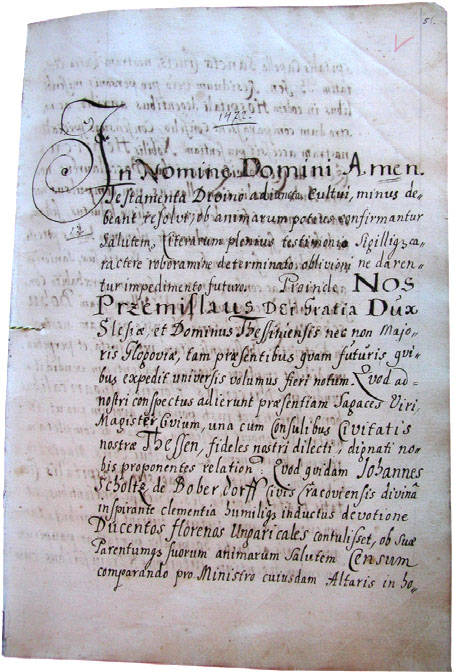 51.
1422.
In Nomine Domini Amen.
Testamenta Divino adiuncta Cultui, minus de-
beant resolvi, ob animarum potius confirmantur
Salutem, Literarum plenius testimonio Sigilliq; ca-
12.
ractere roboramine determinato, oblivioni ne daren-
tur impedimento futuro. Proinde NOS
Przemislaus Dei Gratia Dux
Slesiæ, et Dominus Thessiniensis nec non Majo-
ris Glogoviæ, tam præsentibus quam futuris qui-
bus expedit universis volumus fieri notum. Quod ad
nostri conspectus adierunt præsentiam Sagaces Viri
Magister Civium, una cum Consulibus Civitatis
nostræ Thessen, fideles nostri dilecti, dignati no-
bis proponentes relation: Quod quidam Johannes
Scholtz de Bober dorff Civis Cracoviensis divinâ
inspirante clementia humiliq; inductus devotione
Ducentos florenos Ungaricales contulisset, ob suæ
Parentumq; suorum animarum Salutem Censum
comparando pro Ministro cuiusdam Altaris in ho-